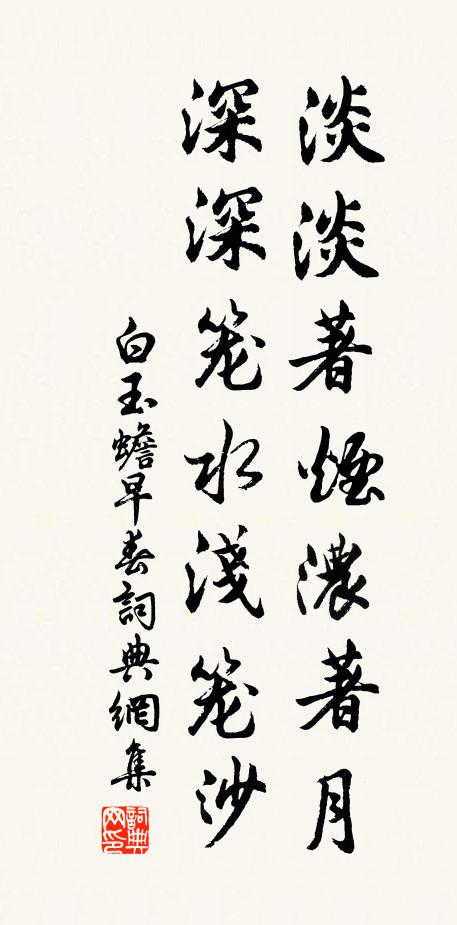 淡淡著煙濃著月
深深笼水淺笼沙
白玉蟾早春詞典網集
詞典网印